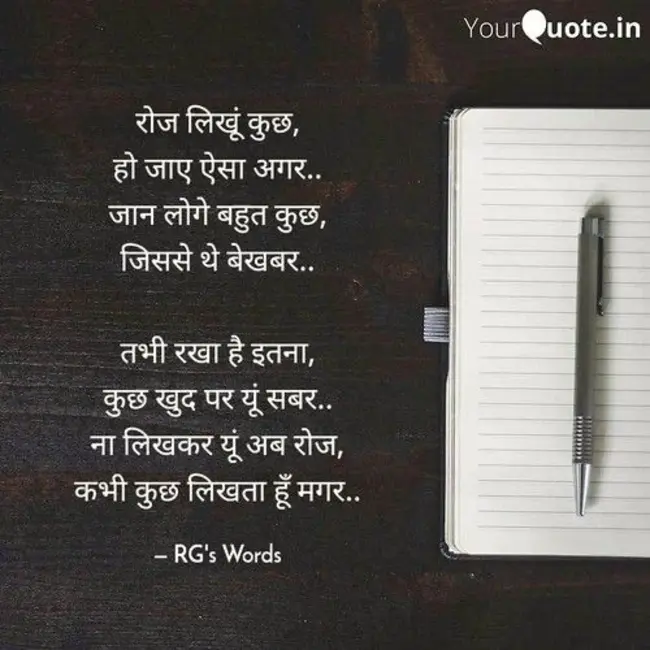 YourQuote.in
रोज लिखूं कुछ,
हो जाए ऐसा अगर..
जान लोगे बहुत कुछ,
जिससे थे बेखबर..
तभी रखा है इतना,
कुछ खुद पर यूं सबर..
ना लिखकर यूं अब रोज,
कभी कुछ लिखता हूँ मगर..
— RG's Words